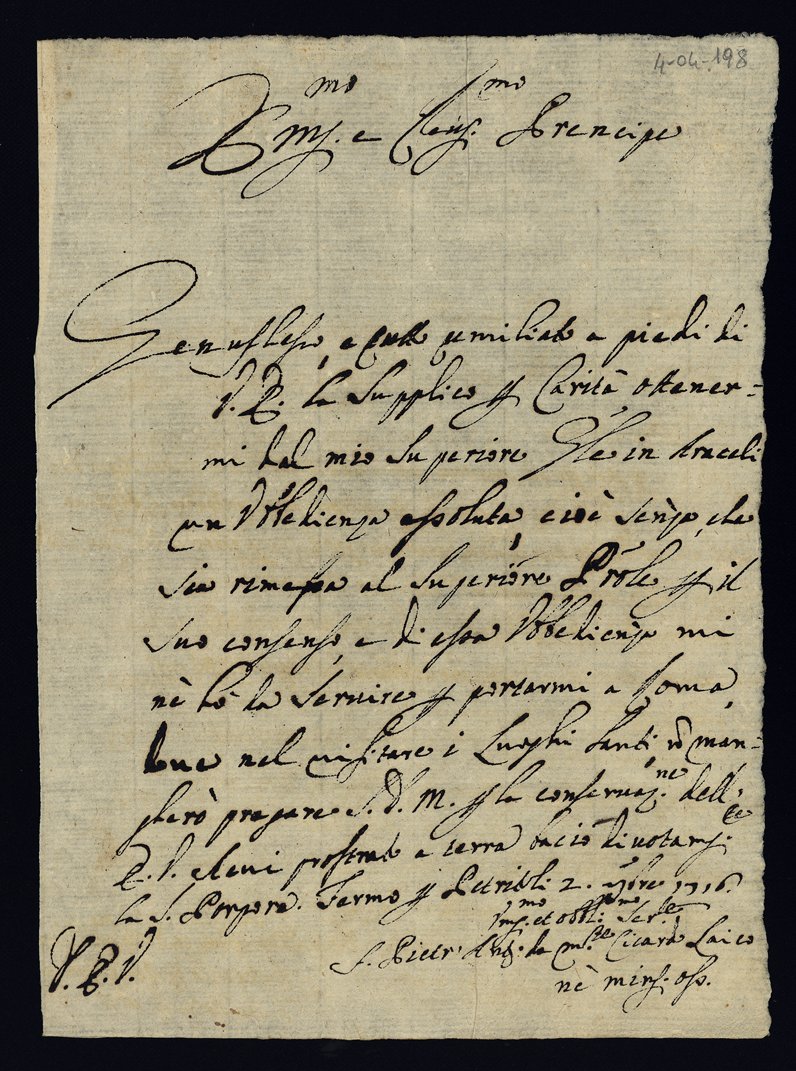 4-04-198
Em.mo e Clem.mo Prencipe
Genuflesso, e tutto umiliato a piedi di
V. E. la supplico p Carità ottener=
mi dal mio Superiore Gle in Araceli
un Vbbedienza assoluta, cioè senza, che
sia rimessa al Superiore Prōle p il
suo consenso, e di essa Vbbedienza mi
nè hò da servire p portarmi a Roma,
doue nel uisitare i Luoghi Santi nō man=
cherò pregare S. D. M. p la conseruaz.ne dell'
E. V. a cui prostrato a terra bacio diuotam.te
la S. Porpora. Fermo p Petritoli 2. 9bre 1716.
Um.mo et obb.mo Ser.re
F. Pietr' Ant. da Laico
nè min. oss.
V. E. V.